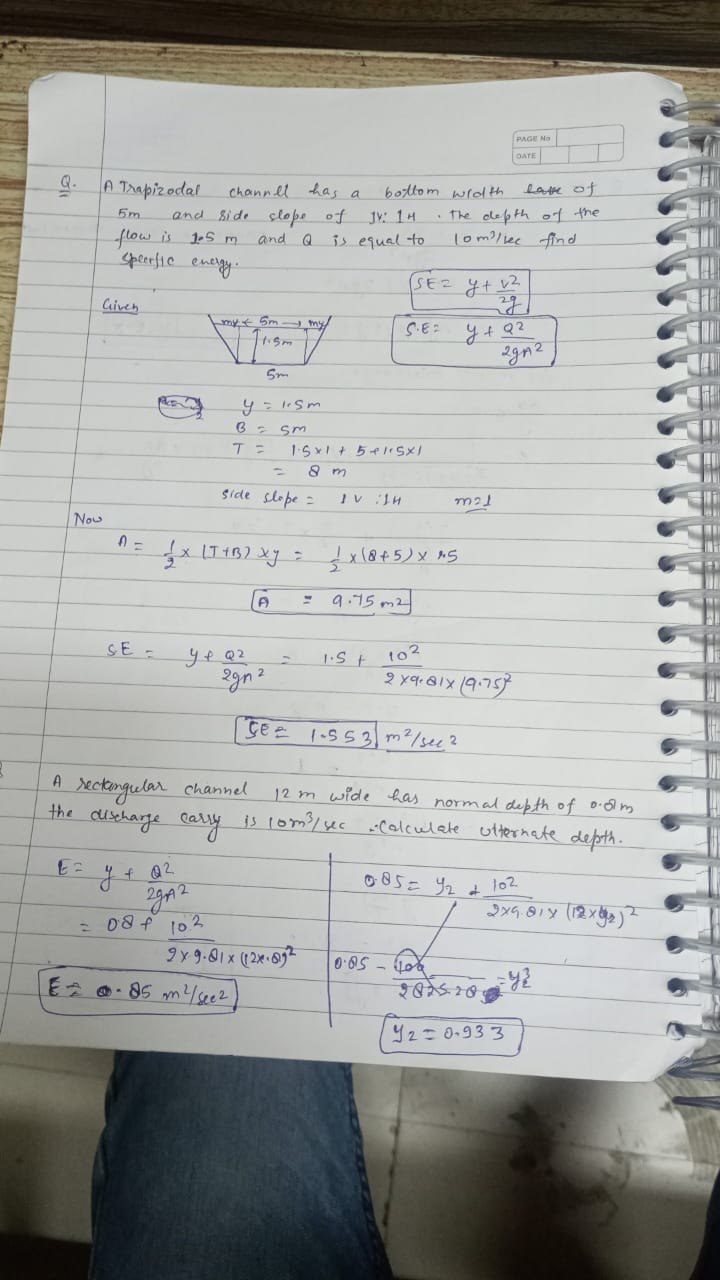 PAGE No
DATE
Q. A Trapizodal channel has a bottom width have of
5m and side slope of 1V: 1H . The depth of the
flow is 1.5 m and Q is equal to 10m³/sec find
Specific energy.
SE = y + v2/2g
Given
my ← 5m → my
S.E = y + Q2/2gA2
1.5m
5m
y = 1.5m
B = 5m
T = 1.5x1 + 5+1.5x1
= 8 m
Side slope = 1V :1H m=1
Now
A = 1/2 x (T+B) xy = 1/2 x(8+5) x 1.5
A = 9.75 m2
SE = y + Q2/2gA2 = 1.5 + 10²/2x9.81x(9.75)²
SE = 1.553 m²/sec2
A rectangular channel 12 m wide has normal depth of 0.8m
the discharge carry is 10m³/sec . Calculate ulternate depth.
E = y + Q2/2gA2
= 0.8 + 10²/2x9.81x(12x.8)²
E = 0.85 m²/sec2
0.85 = y2 + 10²/2x9.81x(12xy2)²
0.85 - 100/2825.28 = y2³
y2 = 0.933